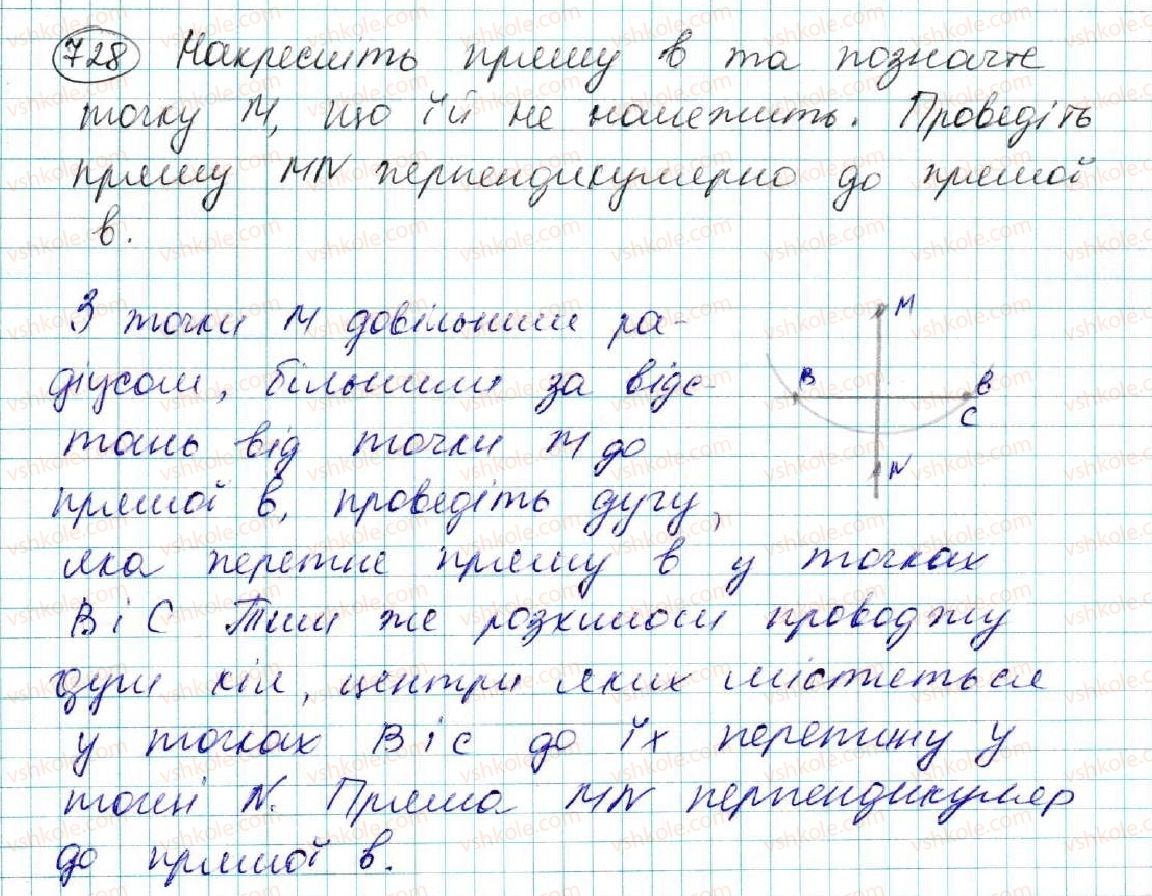 728 Накресліть пряму в та позначте
точку М, що їй не належить. Проведіть
пряму MN перпендикулярно до прямої
в.
З точки М довільним ра-
діусом, більшим за відс-
тань від точки М до
прямої в, проведіть дугу,
яка перетне пряму в у точках
В і С Тим же розхилом проводжу
дуги кіл, центри яких містяться
у точках В і с до їх перетину у
точці N. Пряма MN перпендикуляр
до прямої в.
M
B
в
C
N
vshkole.com